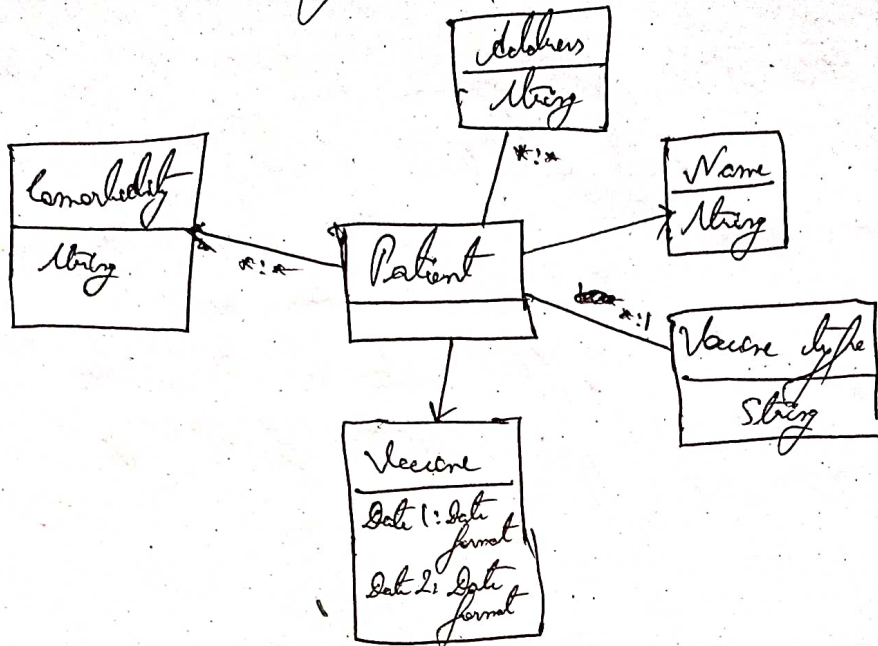 Address
String
*:*
Name
String
Comorbidity
String
*:*
Patient
*:1
Vaccine type
String
Vaccine
Date 1: Date
format
Date 2: Date
format